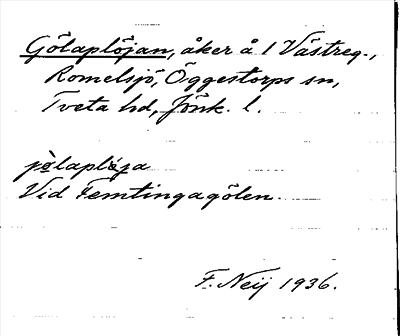 Gölaplöjan, åker å 1 Västreg.,
Romelsjö, Öggestorps sn,
Tveta hd, Jönk. l.
jölaplöja
Vid Femtingagölen.
F. Neij 1936.